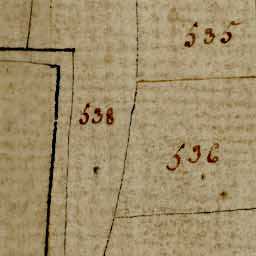 535
538
536